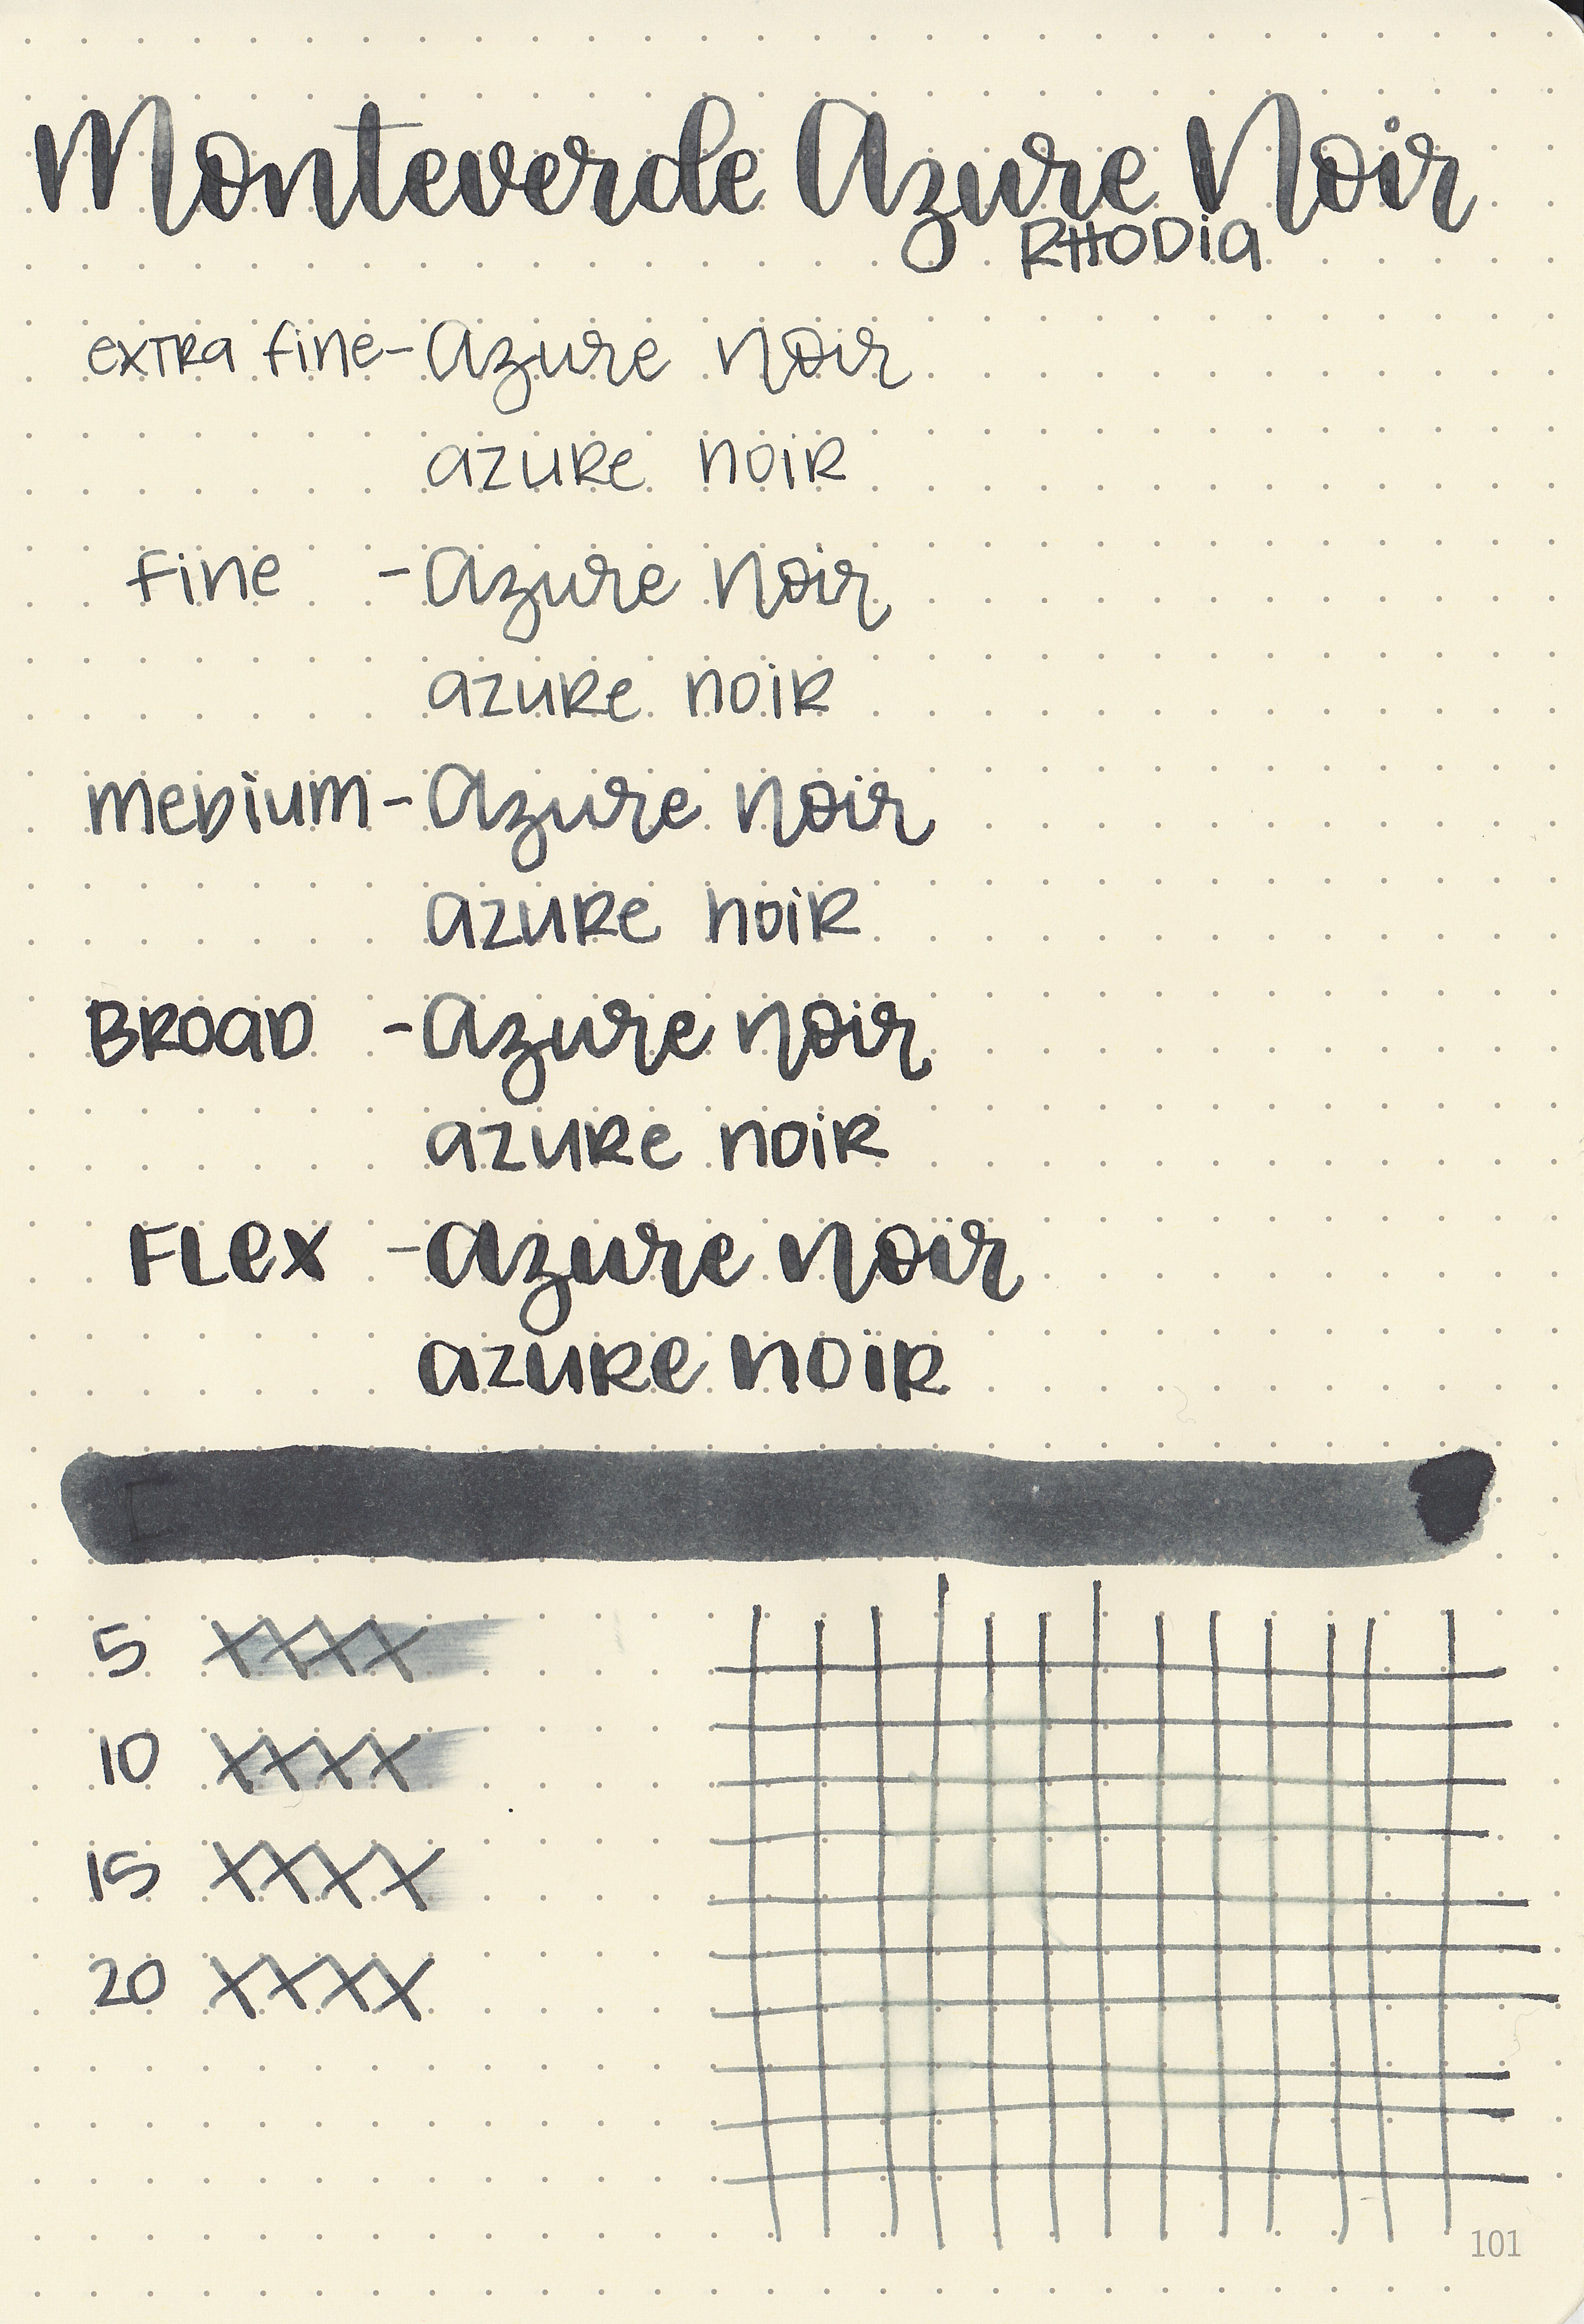 Monteverde Azure Noir
RHODia
exTRa fine - Azure noir
azuRe noiR
fine - Azure noir
azuRe noiR
meDium - Azure noir
azuRe noiR
BRoaD - Azure noir
azuRe noiR
FLex - azure noir
azuRe noiR
5 XXXX
10 XXXX
15 XXXX
20 XXXX
101